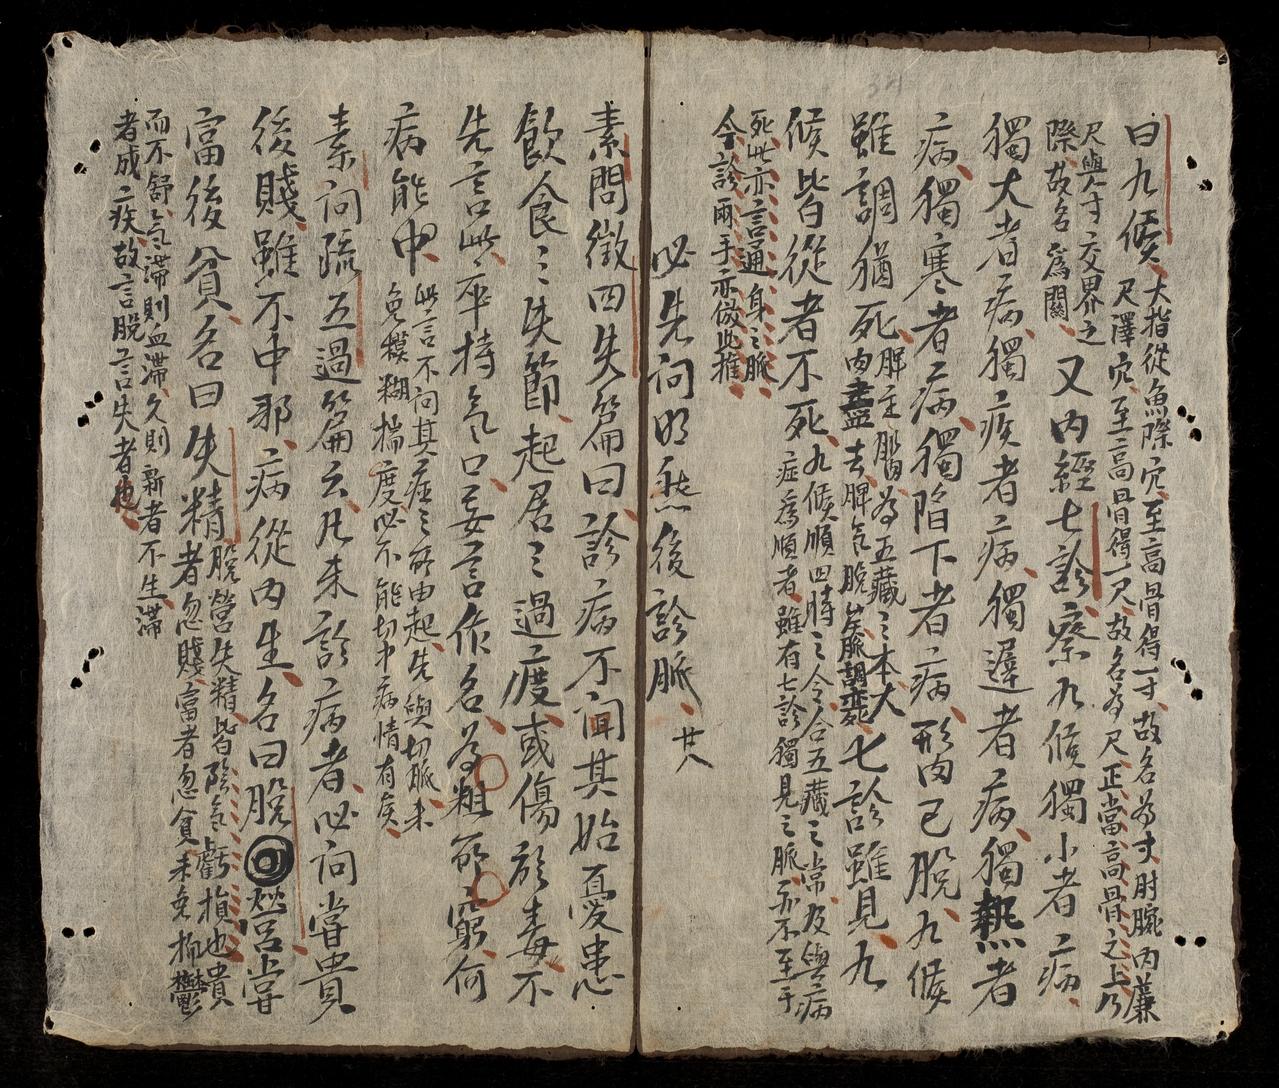 曰九候
大指從魚際穴至高骨得一寸故名為寸肘腕内蔴
尺澤穴至高骨得一尺故名為尺正當高骨之上乃
尺與寸交界之
際故名為關
又内經七診察九候獨小者病
獨大者病獨疾者病獨遲者病獨熱者
病獨寒者病獨陷下者病形肉已脫九候
雖調猶死
脾主肌肉為五藏之本大
肉盡去脾氣脫矣脈調
七診雖見九
候皆從者不死
九候順四時之令合五藏之常及與病
症為順者雖有七診獨見之脈亦不至于
死此亦言通身之脈
今診兩手亦倣此推
必先问明然後診脈 廿八
素問徵四失篇曰診病不问其始憂患
飲食之失節起居之過度或傷於毒不
先言此卒持氣口妄言作名為粗所窮何
病能中
此言不问其症之所由起先與切脈未
免模糊揣度必不能切中病情有矣
素问疏五過篇云凡未診病者必问嘗貴
後賤雖不中邪病從内生名曰脫營嘗
富後貧名曰失精
脫營失精皆陰氣虧損也貴
者忽賤富者忽貧未免抑鬱
而不舒氣滯則血滯久則新者不生滯
者成疾故言脫言失者也